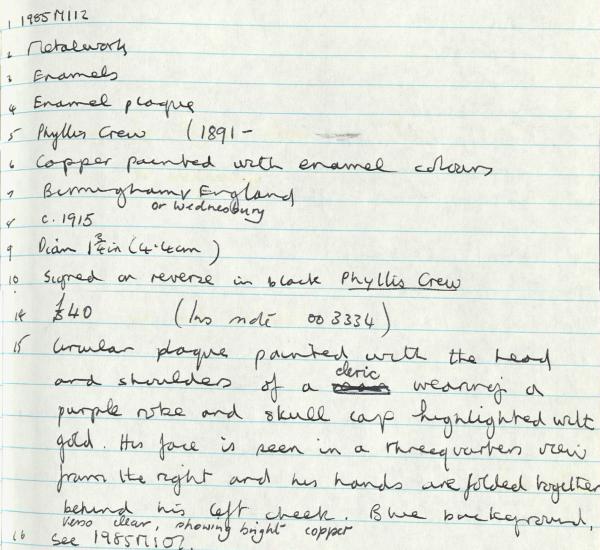 1 1985M112
2 Metalwork
3 Enamels
4 Enamel plaque
5 Phyllis Crew (1891-
6 Copper painted with enamel colours
7 Birmingham, England
or Wednesbury
8 c. 1915
9 Diam 1¾in (4.4cm)
10 Signed on reverse in black Phyllis Crew
14 £40 (Ins note 00 3334)
15 Circular plaque painted with the head
cleric
and shoulders of a wearing a
purple robe and skull cap highlighted with
gold. His face is seen in a threequarters view
from the right and his hands are folded together
behind his left cheek. Blue background,
verso clear, showing bright copper
16 See 1985M107.